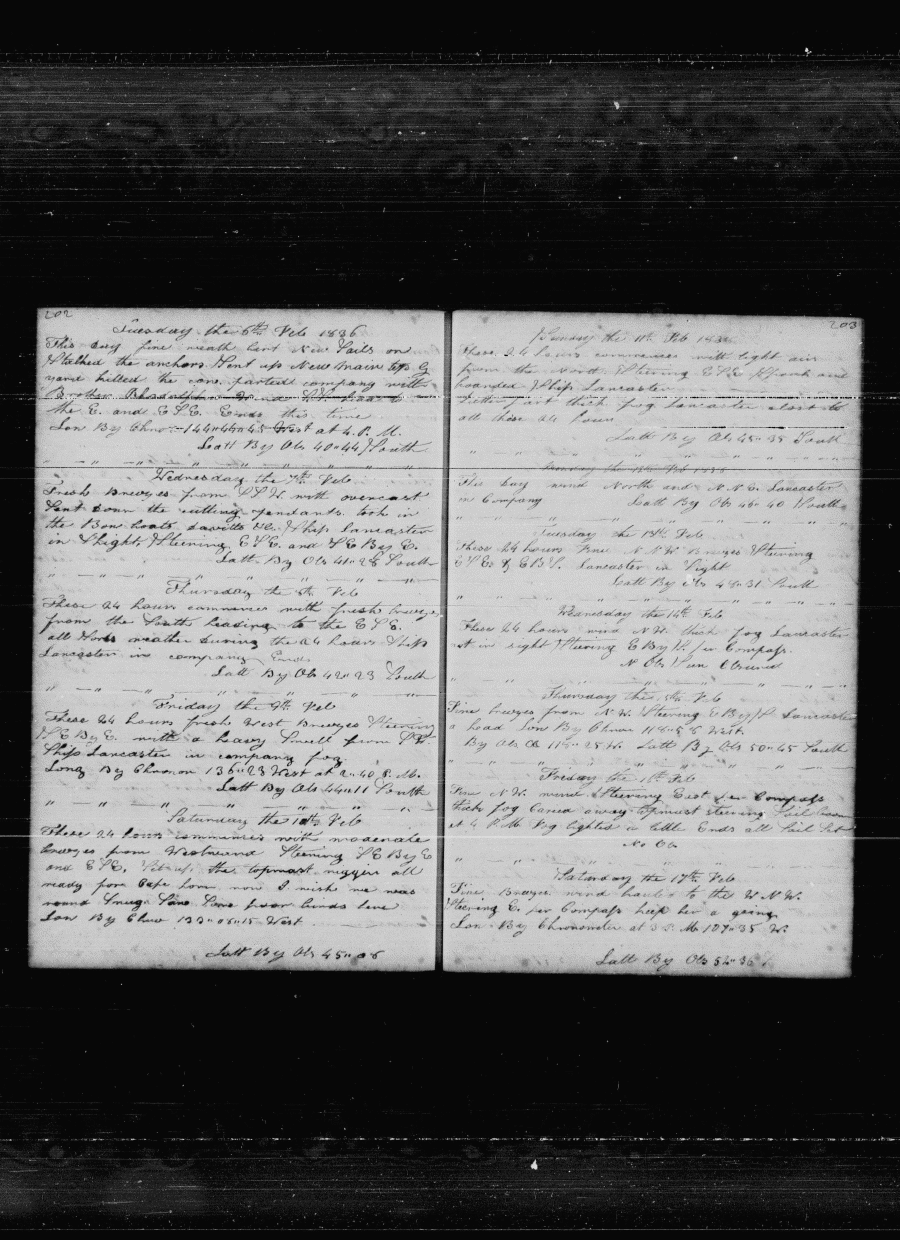 202
Tuesday the 6th Feb 1836
This day fine weath bent New Sails on
the anchors Sent up New main Top G
yard parted company with
Brother
the E. and ESE. Ends this time
Lon By Chro 144"44"45 West at 4. P. M.
Latt By Obs 40"44 South
Wednesday the 7th Feb
Fresh Breezes from SSW. with overcast
Sent down the cutting pendants. took in
the Bow boats davitts &c. Ship Lancaster
in Sight, Steering ESE. and SE By E.
Latt. By Obs 41"28 South
Thursday the 8th Feb
These 24 hours commences with fresh breezes
from the South heading to the ESE.
all Sorts weather during the 24 hours Ship
Lancaster in company Ends
Latt By Obs 42"23 South
Friday the 9th Feb
These 24 hours fresh West Breezes Steering
SE By E. with a heavy Swell from SW.
Ship Lancaster in company fog.
Long By Chronon 136"23 West at 2"40 P. M.
Latt By Obs 44"11 South
Saturday the 10th Feb
These 24 hours commences with moderate
breezes from Westward Steering SE By E
and ESE. the topmast all
ready for Cape horn, now I wish we was
round
Lon By Chro 133"05"15 West
Latt By Obs 45"06
203
Sunday the 11th Feb 1836
These 24 hours commences with light airs
from the North Steering ESE Spoak and
boarded Ship Lancaster
thick fog Lancaster close to
all these 24 hours
Latt By Obs 45"35 South
the 12th Feb 1836
This day wind North and N.N.E. Lancaster
in Company Latt By Obs 46"40 South
Tuesday the 13th Feb
These 24 hours Fine N NW Breezes Steering
Lancaster in Sight
Latt By Obs 48"31 South
Wednesday the 14th Feb
These 24 hours wind N.W. thick fog Lancaster
in sight Steering E By S. per Compass.
N Obs Sun Obscured
Thursday the 15th Feb
Fine breezes from N.W. Steering E By S Lancaster
a head Lon By Chron West.
By Obs W. Latt By Obs 50"45 South
Friday the 16th Feb
Fine N.W. wind Steering East per Compass
thick fog away topmast steering Sail boom
at 4 P.M. Fog lighted a little Ends all Sail Set
No Ob
Saturday the 17th Feb
Fine Breezes wind hauled to the W.N.W.
Steering E. per Compass keep her a going
Lon By Chronometer at 3 P. M. 107"35 W.
Latt By Obs 52"36